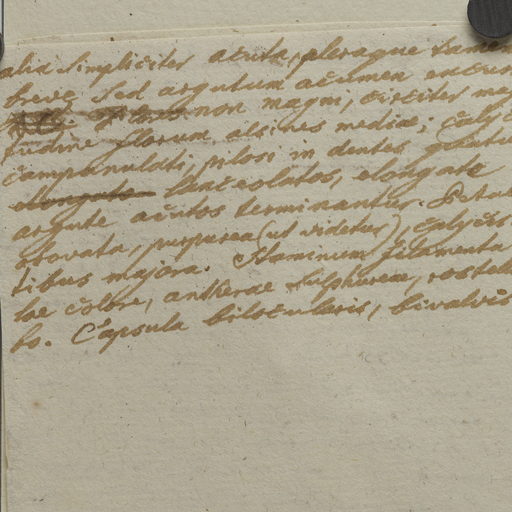 alia simpliciter acuta, pleraque tamen
brevi sed argutum acumen
non magni, circiter
tudine florum alsines mediae; Calyc
campanulati, pilosi in dentes
lanceolatos, elongate
argute acutos terminantur. Petal
obovata, purpurea (ut videtur), calyc
tibus majora. Staminum filamenta
lae colore, antherae sulphureae, rostell
bo. Capsula bilocularis, bivalvis